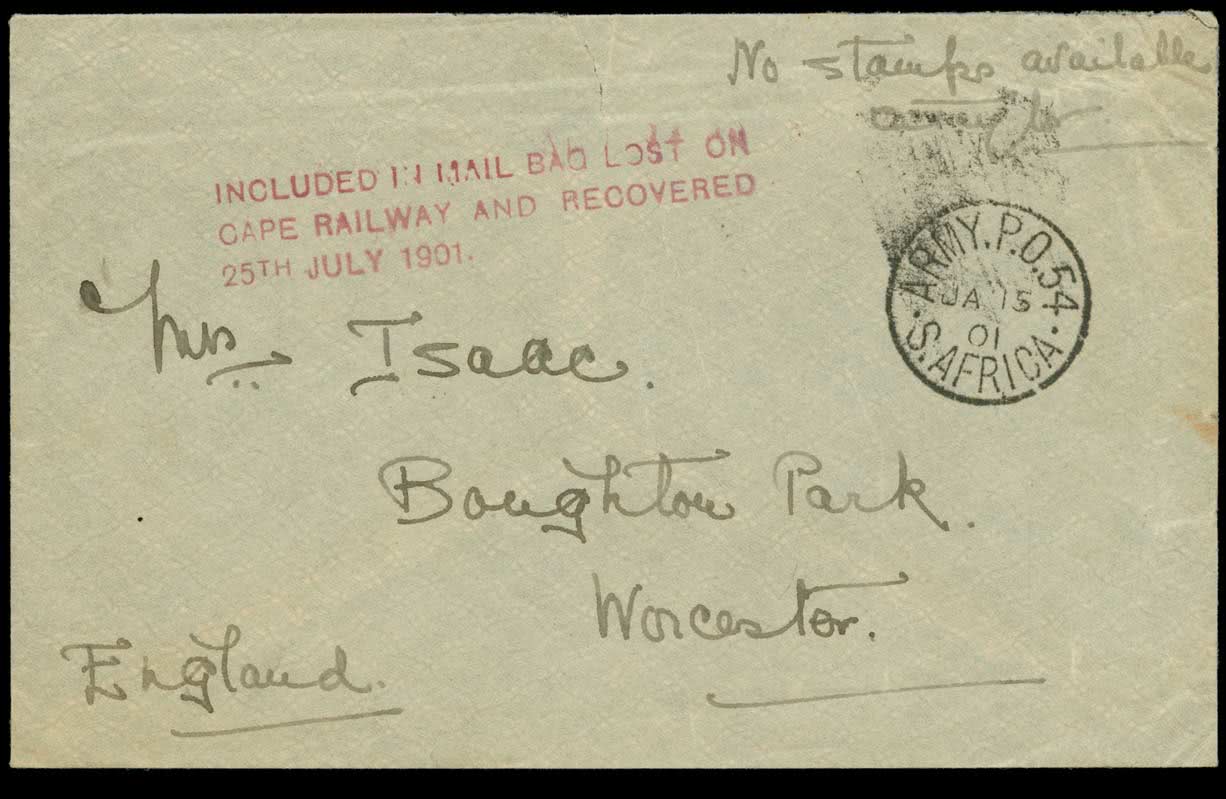 No stamps available
INCLUDED IN MAIL BAG LOST ON
CAPE RAILWAY AND RECOVERED
25TH JULY 1901.
ARMY.P.O.54
JA 15
01
S.AFRICA
Mrs Isaac.
Boughton Park.
Worcester.
England.